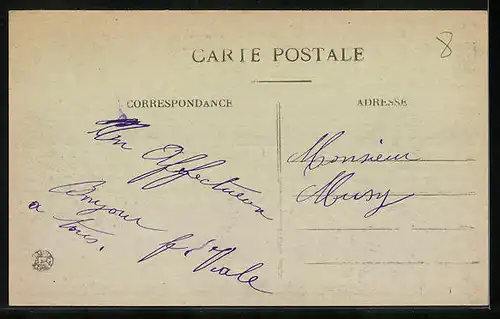 8
CARTE POSTALE
CORRESPONDANCE
ADRESSE
Un Affectueux
Bonjour
a tous.
Monsieur
Musy